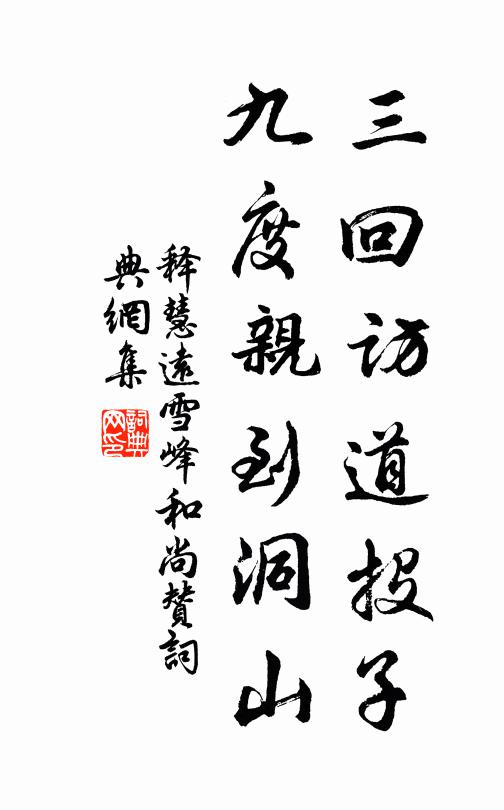 三回访道投子
九度親到洞山
释慧遠雪峰和尚赞詞
典網集
詞典网印